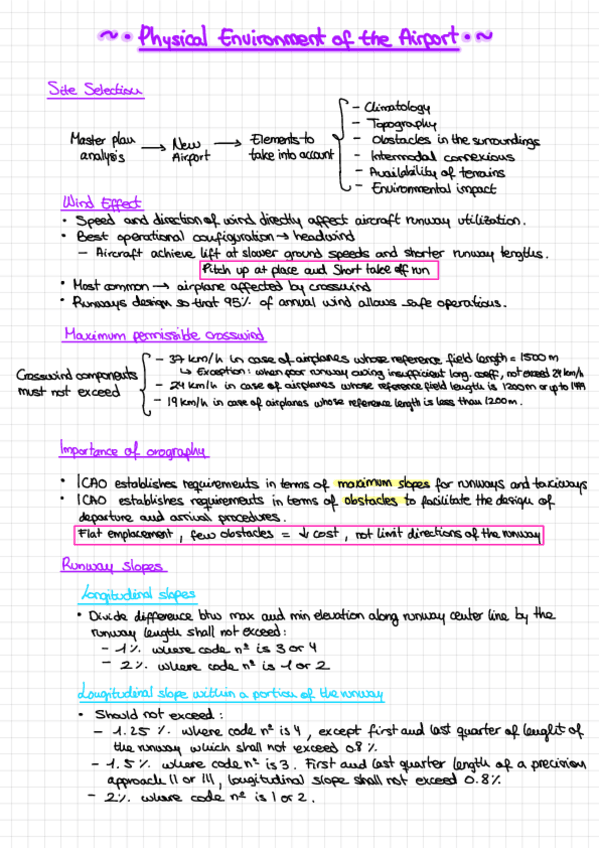 ~• Physical Environment of the Airport •~
Site Selection
Master plan analysis → New Airport → Elements to take into account
- Climatology
- Topography
- Obstacles in the surroundings
- Intermodal connexious
- Availability of terrains
- Environmental impact
Wind Effect
• Speed and direction of wind directly affect aircraft runway utilization.
• Best operational configuration → headwind
- Aircraft achieve lift at slower ground speeds and shorter runway lengths.
Pitch up at place and Short take off run
• Most common → airplane affected by crosswind
• Runways design so that 95% of annual wind allows safe operations.
Maximum permissible crosswind
Crosswind components must not exceed
- 37 km/h in case of airplanes whose reference field length = 1500 m
↳ Exception: when poor runway owing insufficient long. coeff, not exceed 24 km/h
- 24 km/h in case of airplanes whose reference field length is 1200m or up to 1499
- 19 km/h in case of airplanes whose reference length is less than 1200m.
Importance of orography
• ICAO establishes requirements in terms of maximum slopes for runways and taxiways
• ICAO establishes requirements in terms of obstacles to facilitate the design of
departure and arrival procedures.
Flat emplacement, few obstacles = ↓ cost, not limit directions of the runway
Runway slopes
Longitudinal slopes
• Divide difference btw max and min elevation along runway center line by the
runway length shall not exceed:
- 1% where code nº is 3 or 4
- 2% where code nº is 1 or 2
Longitudinal slope within a portion of the runway
• Should not exceed:
- 1.25 % where code nº is 4, except first and last quarter of lenght of
the runway which shall not exceed 0.8 %
- 1.5 % where code nº is 3. First and last quarter length of a precision
approach II or III, longitudinal slope shall not exceed 0.8%
- 2% where code nº is 1 or 2.